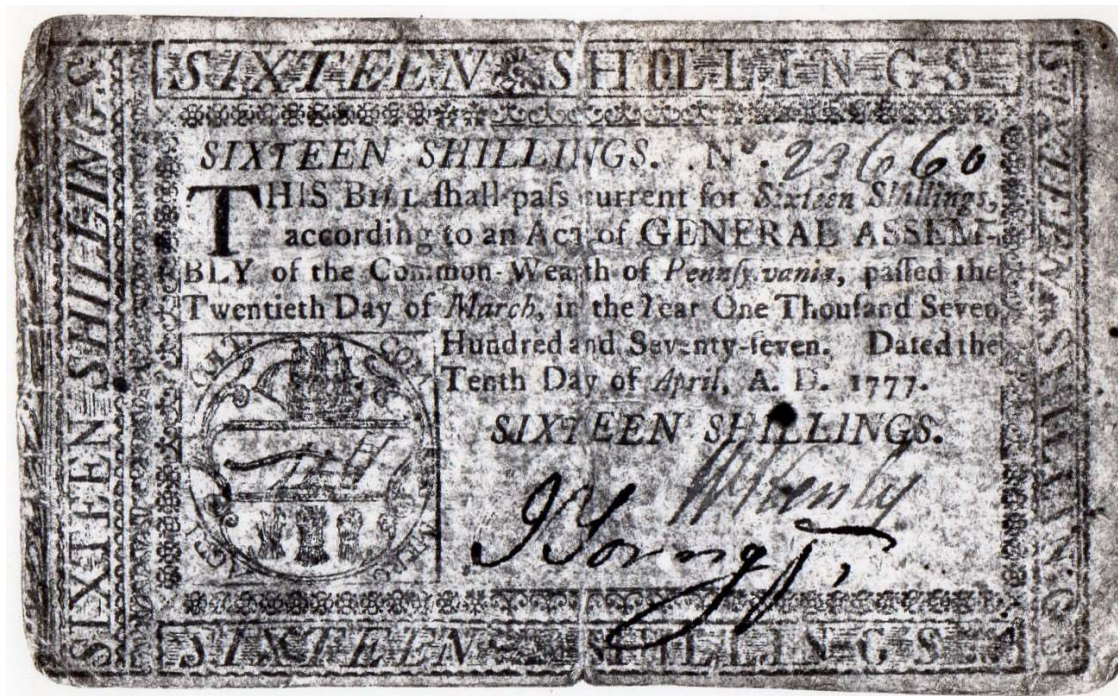 SIXTEEN SHILLINGS
SIXTEEN SHILLINGS
SIXTEEN SHILLINGS. No. 23660
THIS BILL ſhall paſs current for Sixteen Shillings,
according to an Act of GENERAL ASSEM-
BLY of the Common-Wealth of Pennſylvania, paſſed the
Twentieth Day of March, in the Year One Thouſand Seven
Hundred and Seventy-ſeven. Dated the
Tenth Day of April, A. D. 1777.
SIXTEEN SHILLINGS.
J Young Jr.
SIXTEEN SHILLINGS
SIXTEEN SHILLINGS